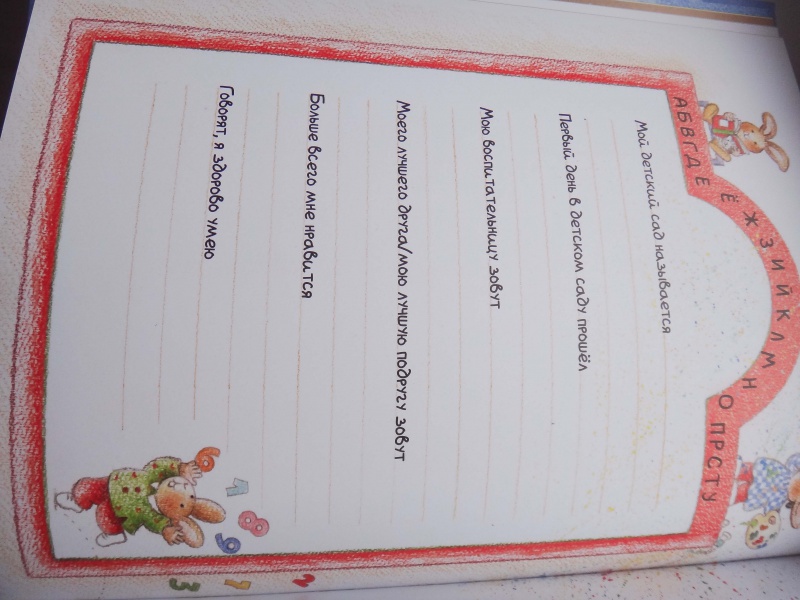 АБВГДЕЁЖЗИЙКЛМНОПРСТУ
Мой детский сад называется
Первый день в детском саду прошёл
Мою воспитательницу зовут
Моего лучшего друга/мою лучшую подругу зовут
Больше всего мне нравится
Говорят, я здорово умею
6 1 8 9